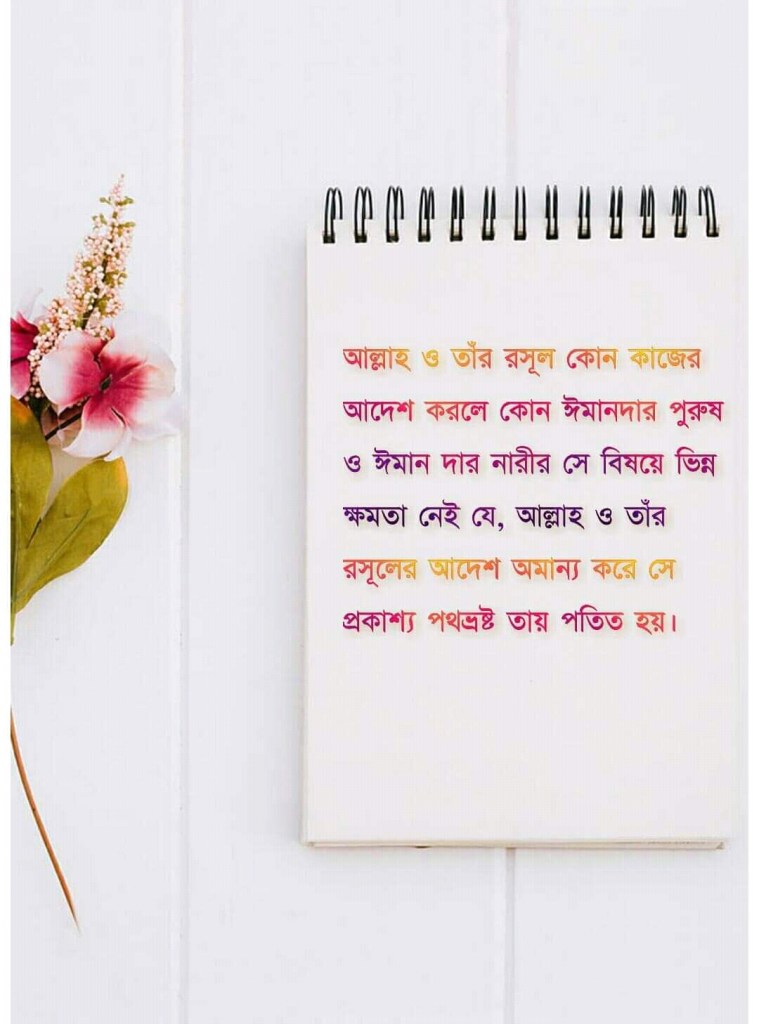 আল্লাহ ও তাঁর রসূল কোন কাজের
আদেশ করলে কোন ঈমানদার পুরুষ
ও ঈমান দার নারীর সে বিষয়ে ভিন্ন
ক্ষমতা নেই যে, আল্লাহ ও তাঁর
রসূলের আদেশ অমান্য করে সে
প্রকাশ্য পথভ্রষ্ট তায় পতিত হয়।